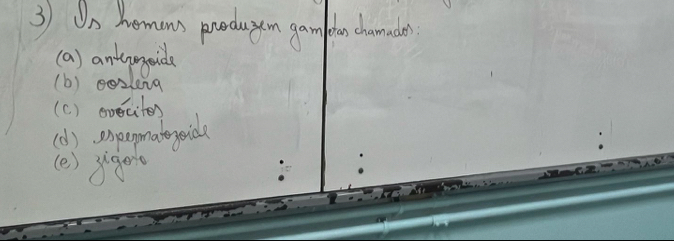 3) Os homens produzem gametas chamados:
(a) anterozoide
(b) oosfera
(c) ovócitos
(d) espermatozoide
(e) zigoto